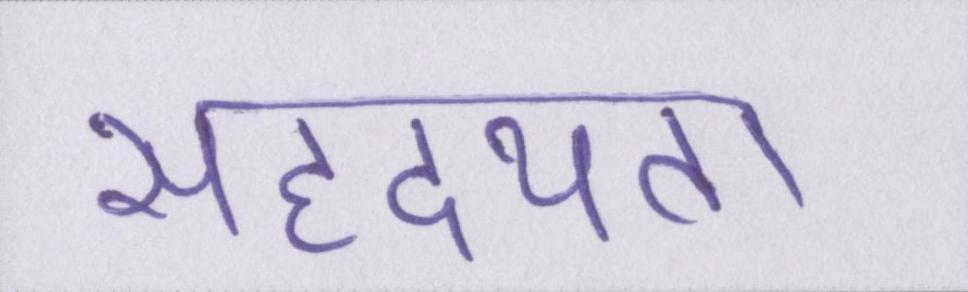 सहृदयता